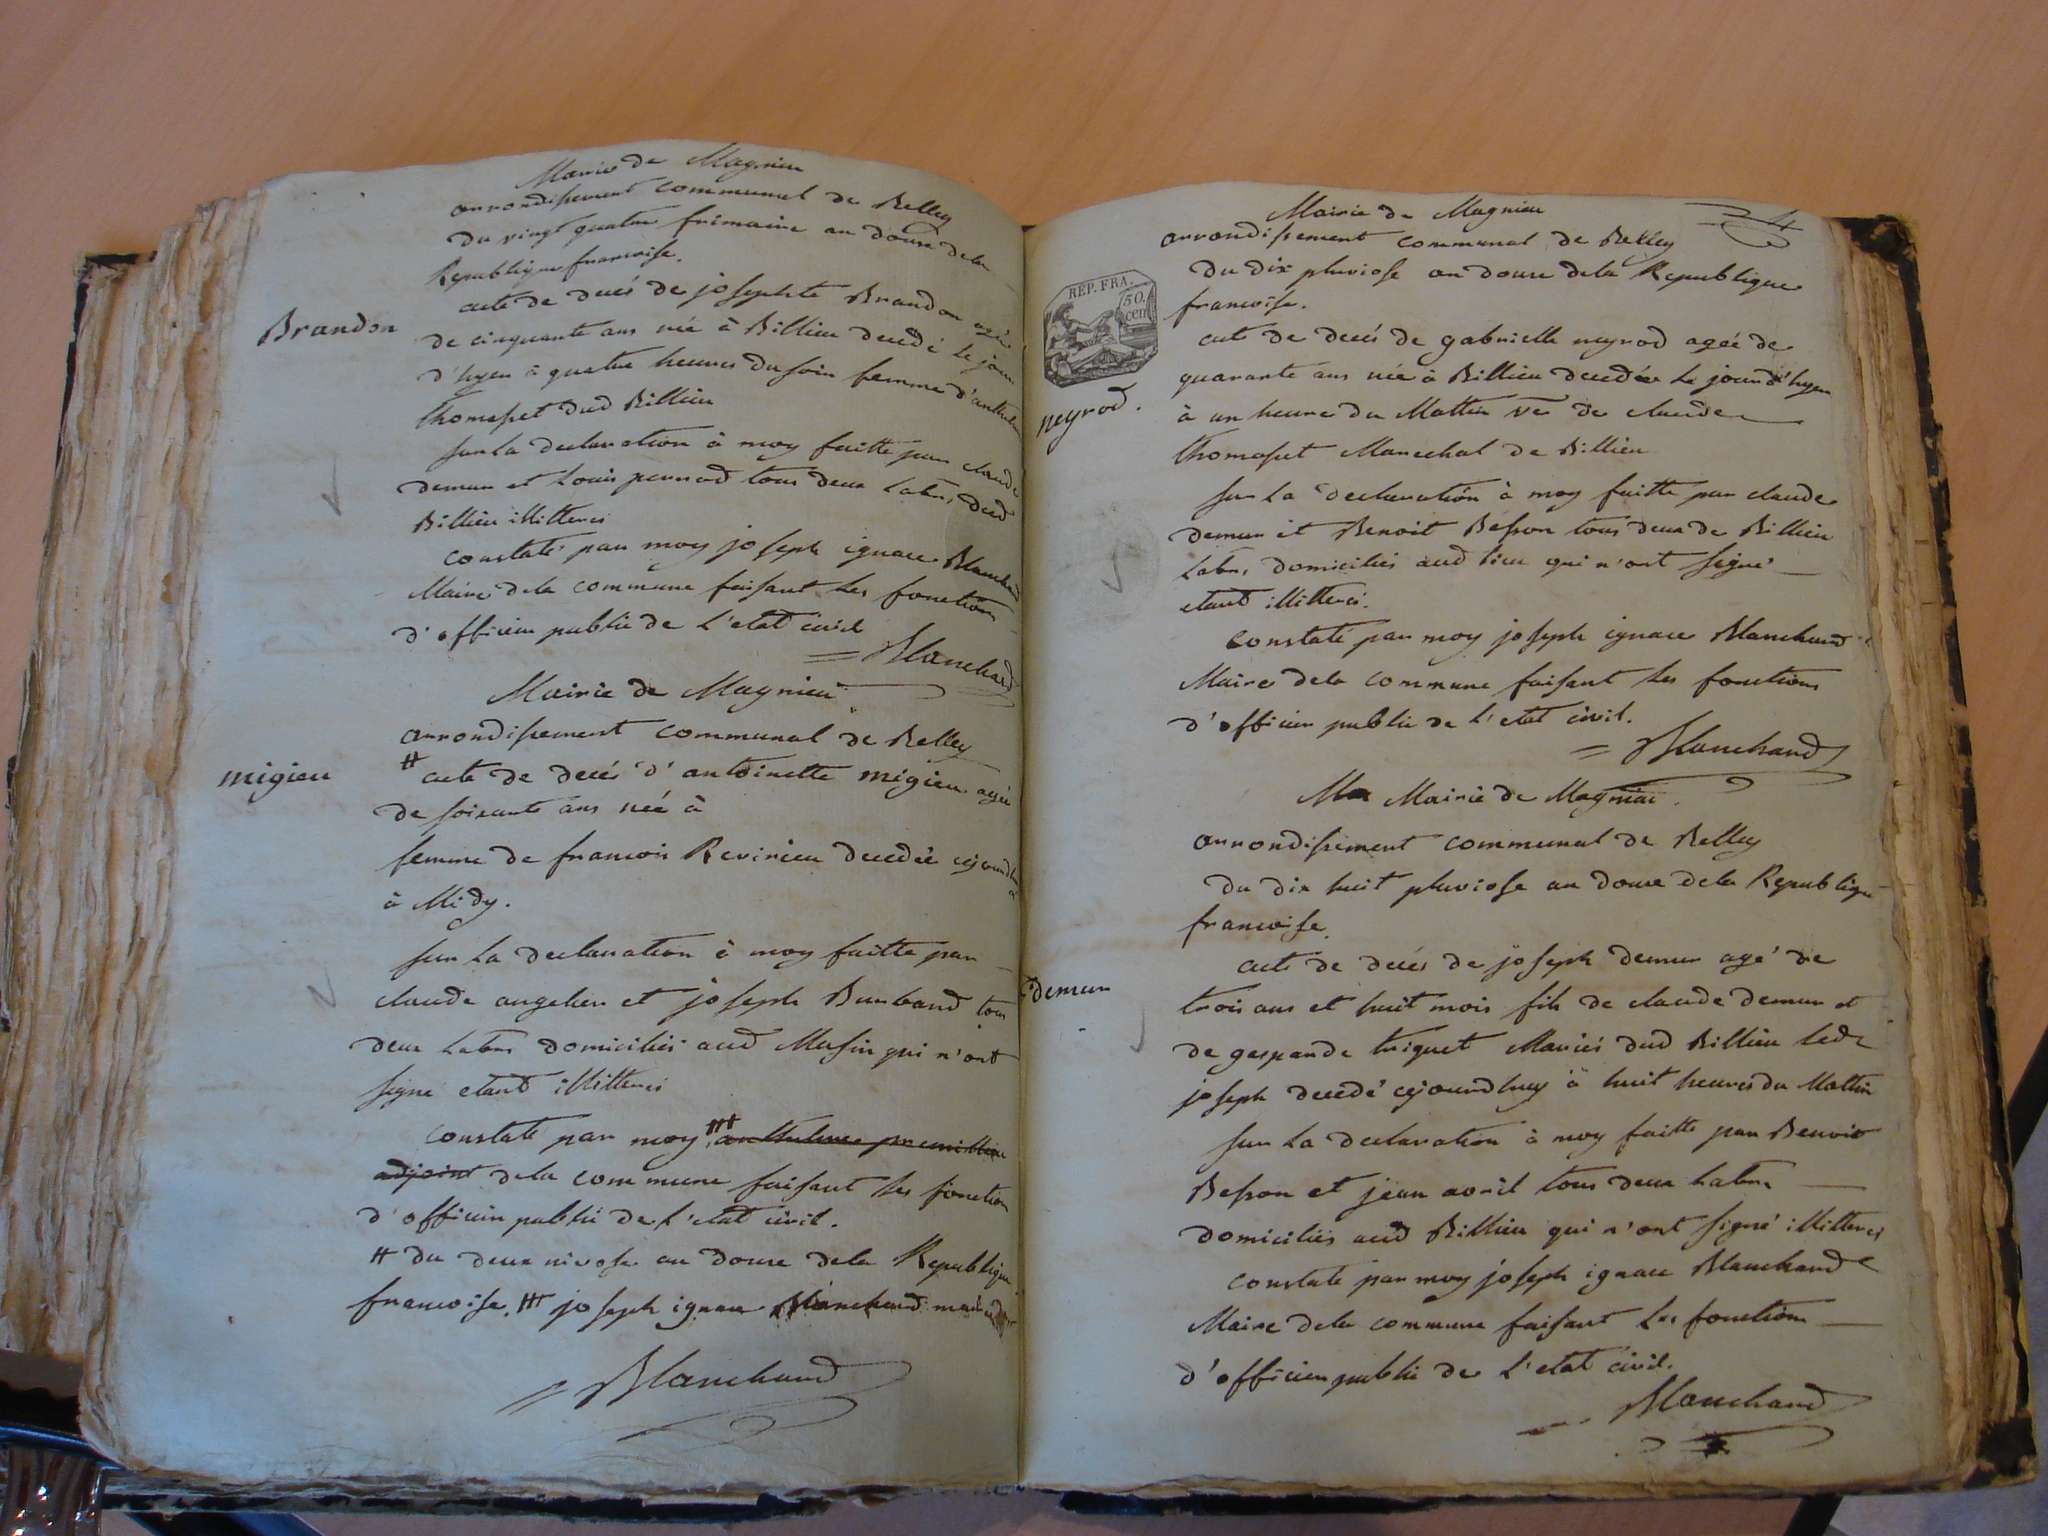 Mairie de Magnieu
arrondissement communal de Belley
du vingt quatre frimaire an douze de la
Republique francoise.
Brandon
acte de decés de josephte Brandon agée
de cinquante ans née à Billieu decedé le jour
d'hyer à quatre heures du soir femme d'anthelme
thomasset dud Billieu
sur la declaration à moy faitte par claude
demur et Louis pernod tous deux Labrs, dud
Billieu illitterés
constaté par moy joseph ignace Blanchard
Maire dela commune faisant les fonctions
d'officier public de L'etat civil
Blanchard
Mairie de Magnieu
arrondissement communal de Belley
migieu
# acte de decés d'antoinette migieu agée
de soixante ans née à
femme de francois Revirieu decedée cejourdhuy
à Midy.
sur La declaration à moy faitte par
claude angelier et joseph Burband tous
deux Labrs domiciliés aud Musin qui n'ont
signé etant illitterés
constaté par moy ### anthelme premillieu
adjoint dela commune faisant les fonction
d'officier public de L'etat civil.
# du deux nivose an douze dela Republique
francoise. ### joseph ignace Blanchard maire
Blanchard
4
Mairie de Magnieu
arrondissement communal de Belley
du dix pluviose an douze dela Republique
francoise.
REP. FRA.
50.
cen
neyrod.
acte de decés de gabrielle neyrod agée de
quarante ans née à Billieu decedée le jour d'hyer
à un heure du Mattin ve de claude
thomasset Marechal de Billieu
sur La declaration à moy faitte par claude
demur et Benoit Besson tous deux de Billieu
Labrs, domiciliés aud lieu qui n'ont signé
etant illitterés.
constaté par moy joseph ignace Blanchard
Maire dela commune faisant les fonctions
d'officier public de L'etat civil.
Blanchard
Ma Mairie de Magnieu.
arrondissement communal de Belley
du dix huit pluviose an douze dela Republique
francoise.
demur
acte de decés de joseph demur agé de
trois ans et huit mois fils de claude demur et
de gasparde triquet Mariés dud Billieu led
joseph decedé cejourdhuy à huit heures du Mattin
sur La declaration à moy faitte par Benoit
Besson et jean avril tous deux Labrs
domiciliés aud Billieu qui n'ont signé illitterés
constaté par moy joseph ignace Blanchard
Maire dela commune faisant les fonctions
d'officier public de L'etat civil.
Blanchard